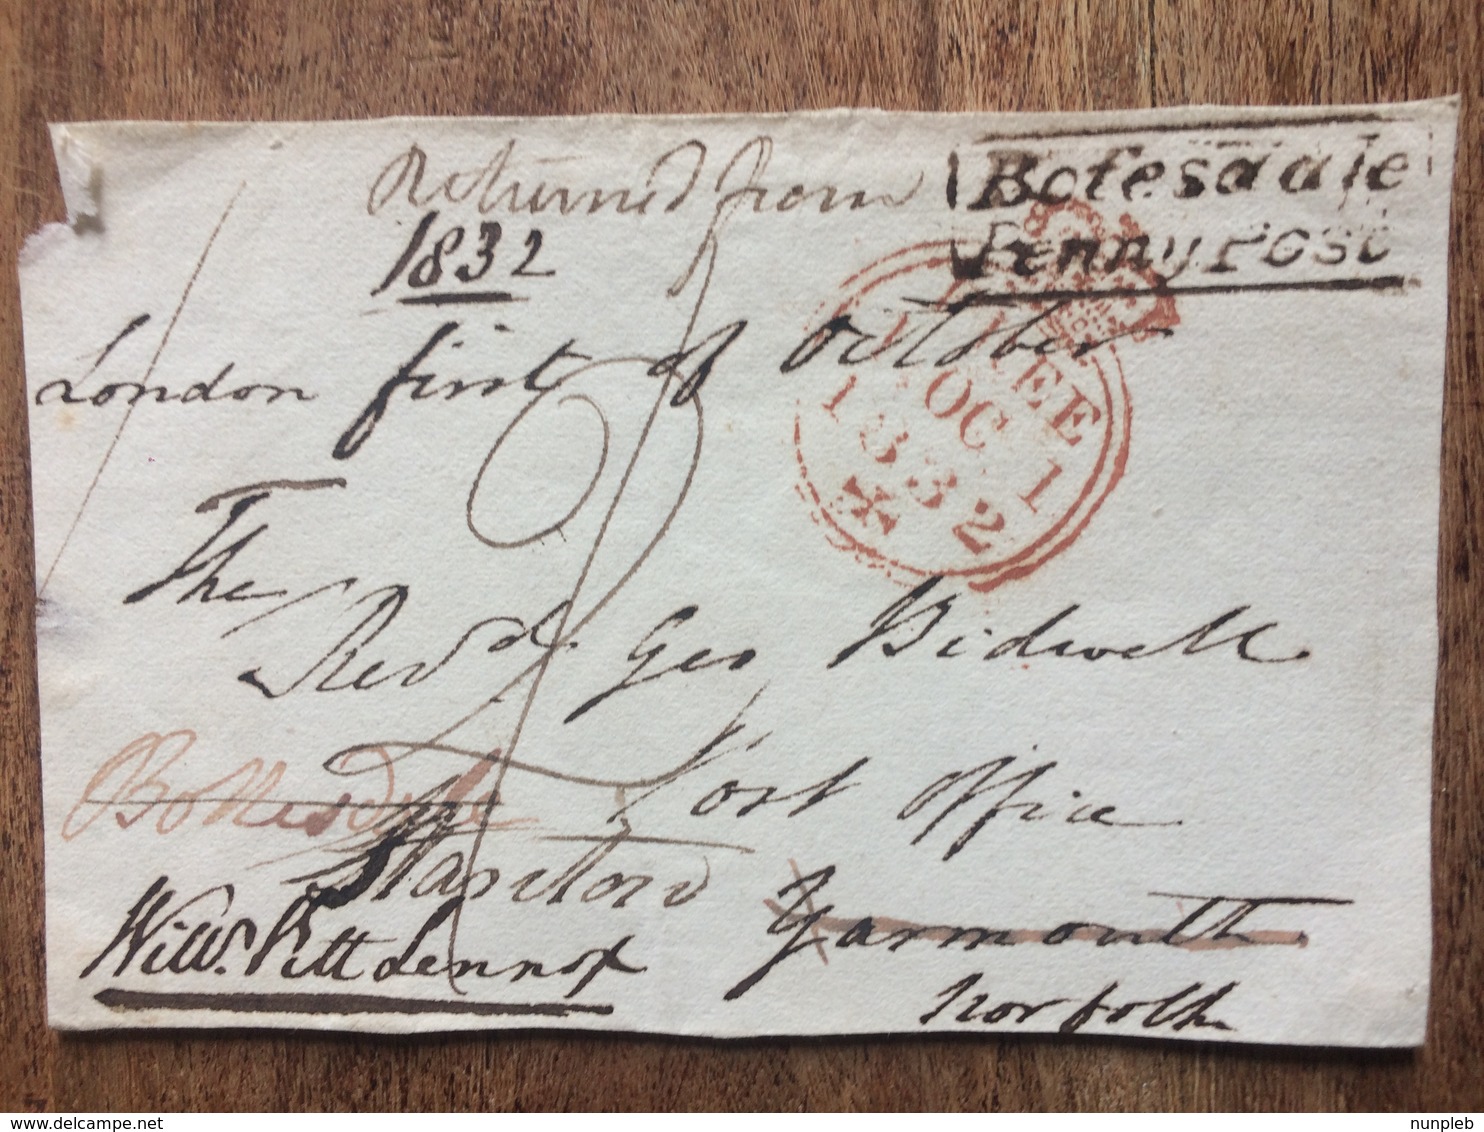 Returned from
Botesdale
Penny Post
1832
London first of October
FREE
OC 1
1832
The
Revd Geo Bidwell
Post Office
Bottesdale
Yarmouth
Willm. Pitt Lennox
Norfolk
delcampe.net
nunpleb